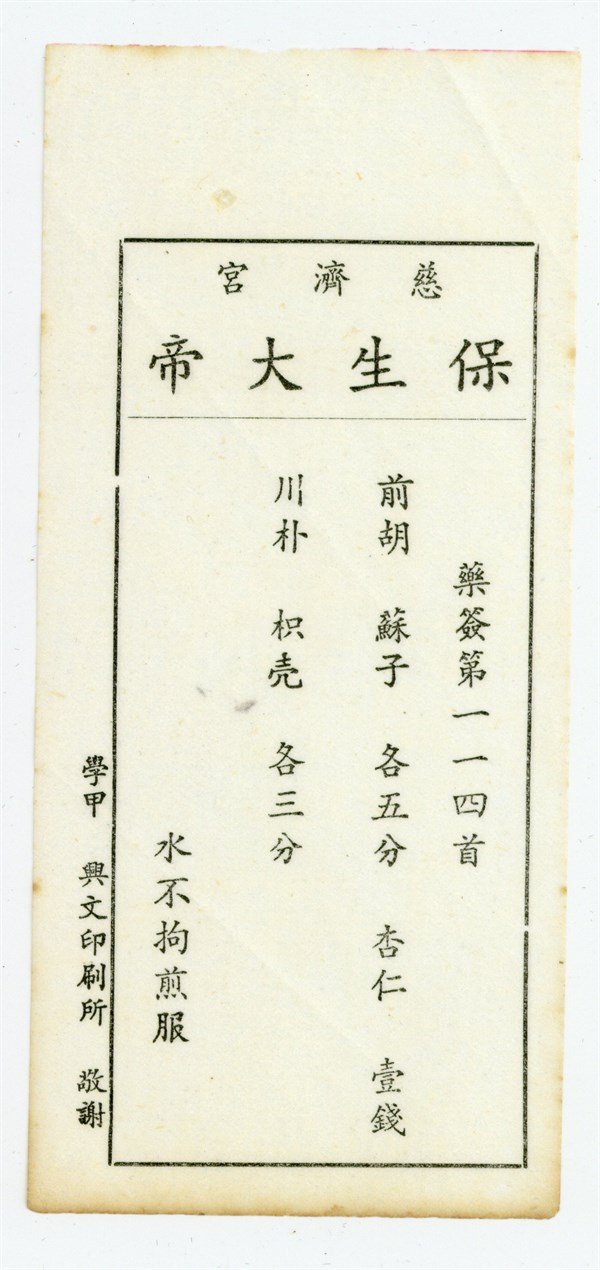 慈濟宮
保生大帝
藥簽第一一四首
前胡 蘇子 各五分 杏仁 壹錢
川朴 枳壳 各三分
水不拘煎服
學甲 興文印刷所 敬謝